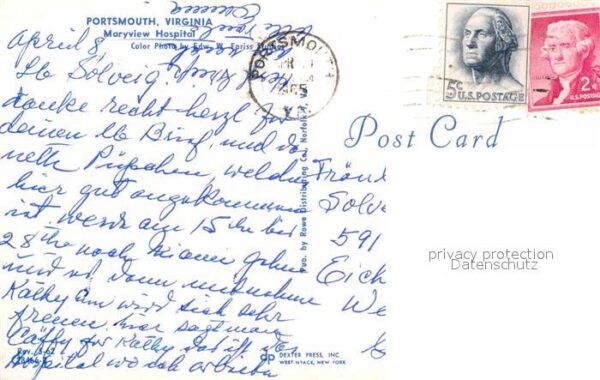 PORTSMOUTH, VIRGINIA
Maryview Hospital
Color Photo by Edw. W.
April 8
Lb Solveig,
danke recht herzl. für
deinen lb Brief, und das
nette Püpchen, welche
hier gut angekommen
ist. werde am 15th bis
28th nach Miami gehen
und es dann mitnehmen
Kathy Ann wird sich sehr
freuen, hier sagt man
Caffy for Kathy das ist das
Hospital wo ich arbeite
PORTSMOUTH
VA.
5c
U.S. POSTAGE
2c
U.S. POSTAGE
Post Card
Fräul
Solve
591
Eich
We
privacy protection
Datenschutz
Pub. by Rowe Distributing Co., Norfolk,
DEXTER PRESS, INC.
WEST NYACK, NEW YORK